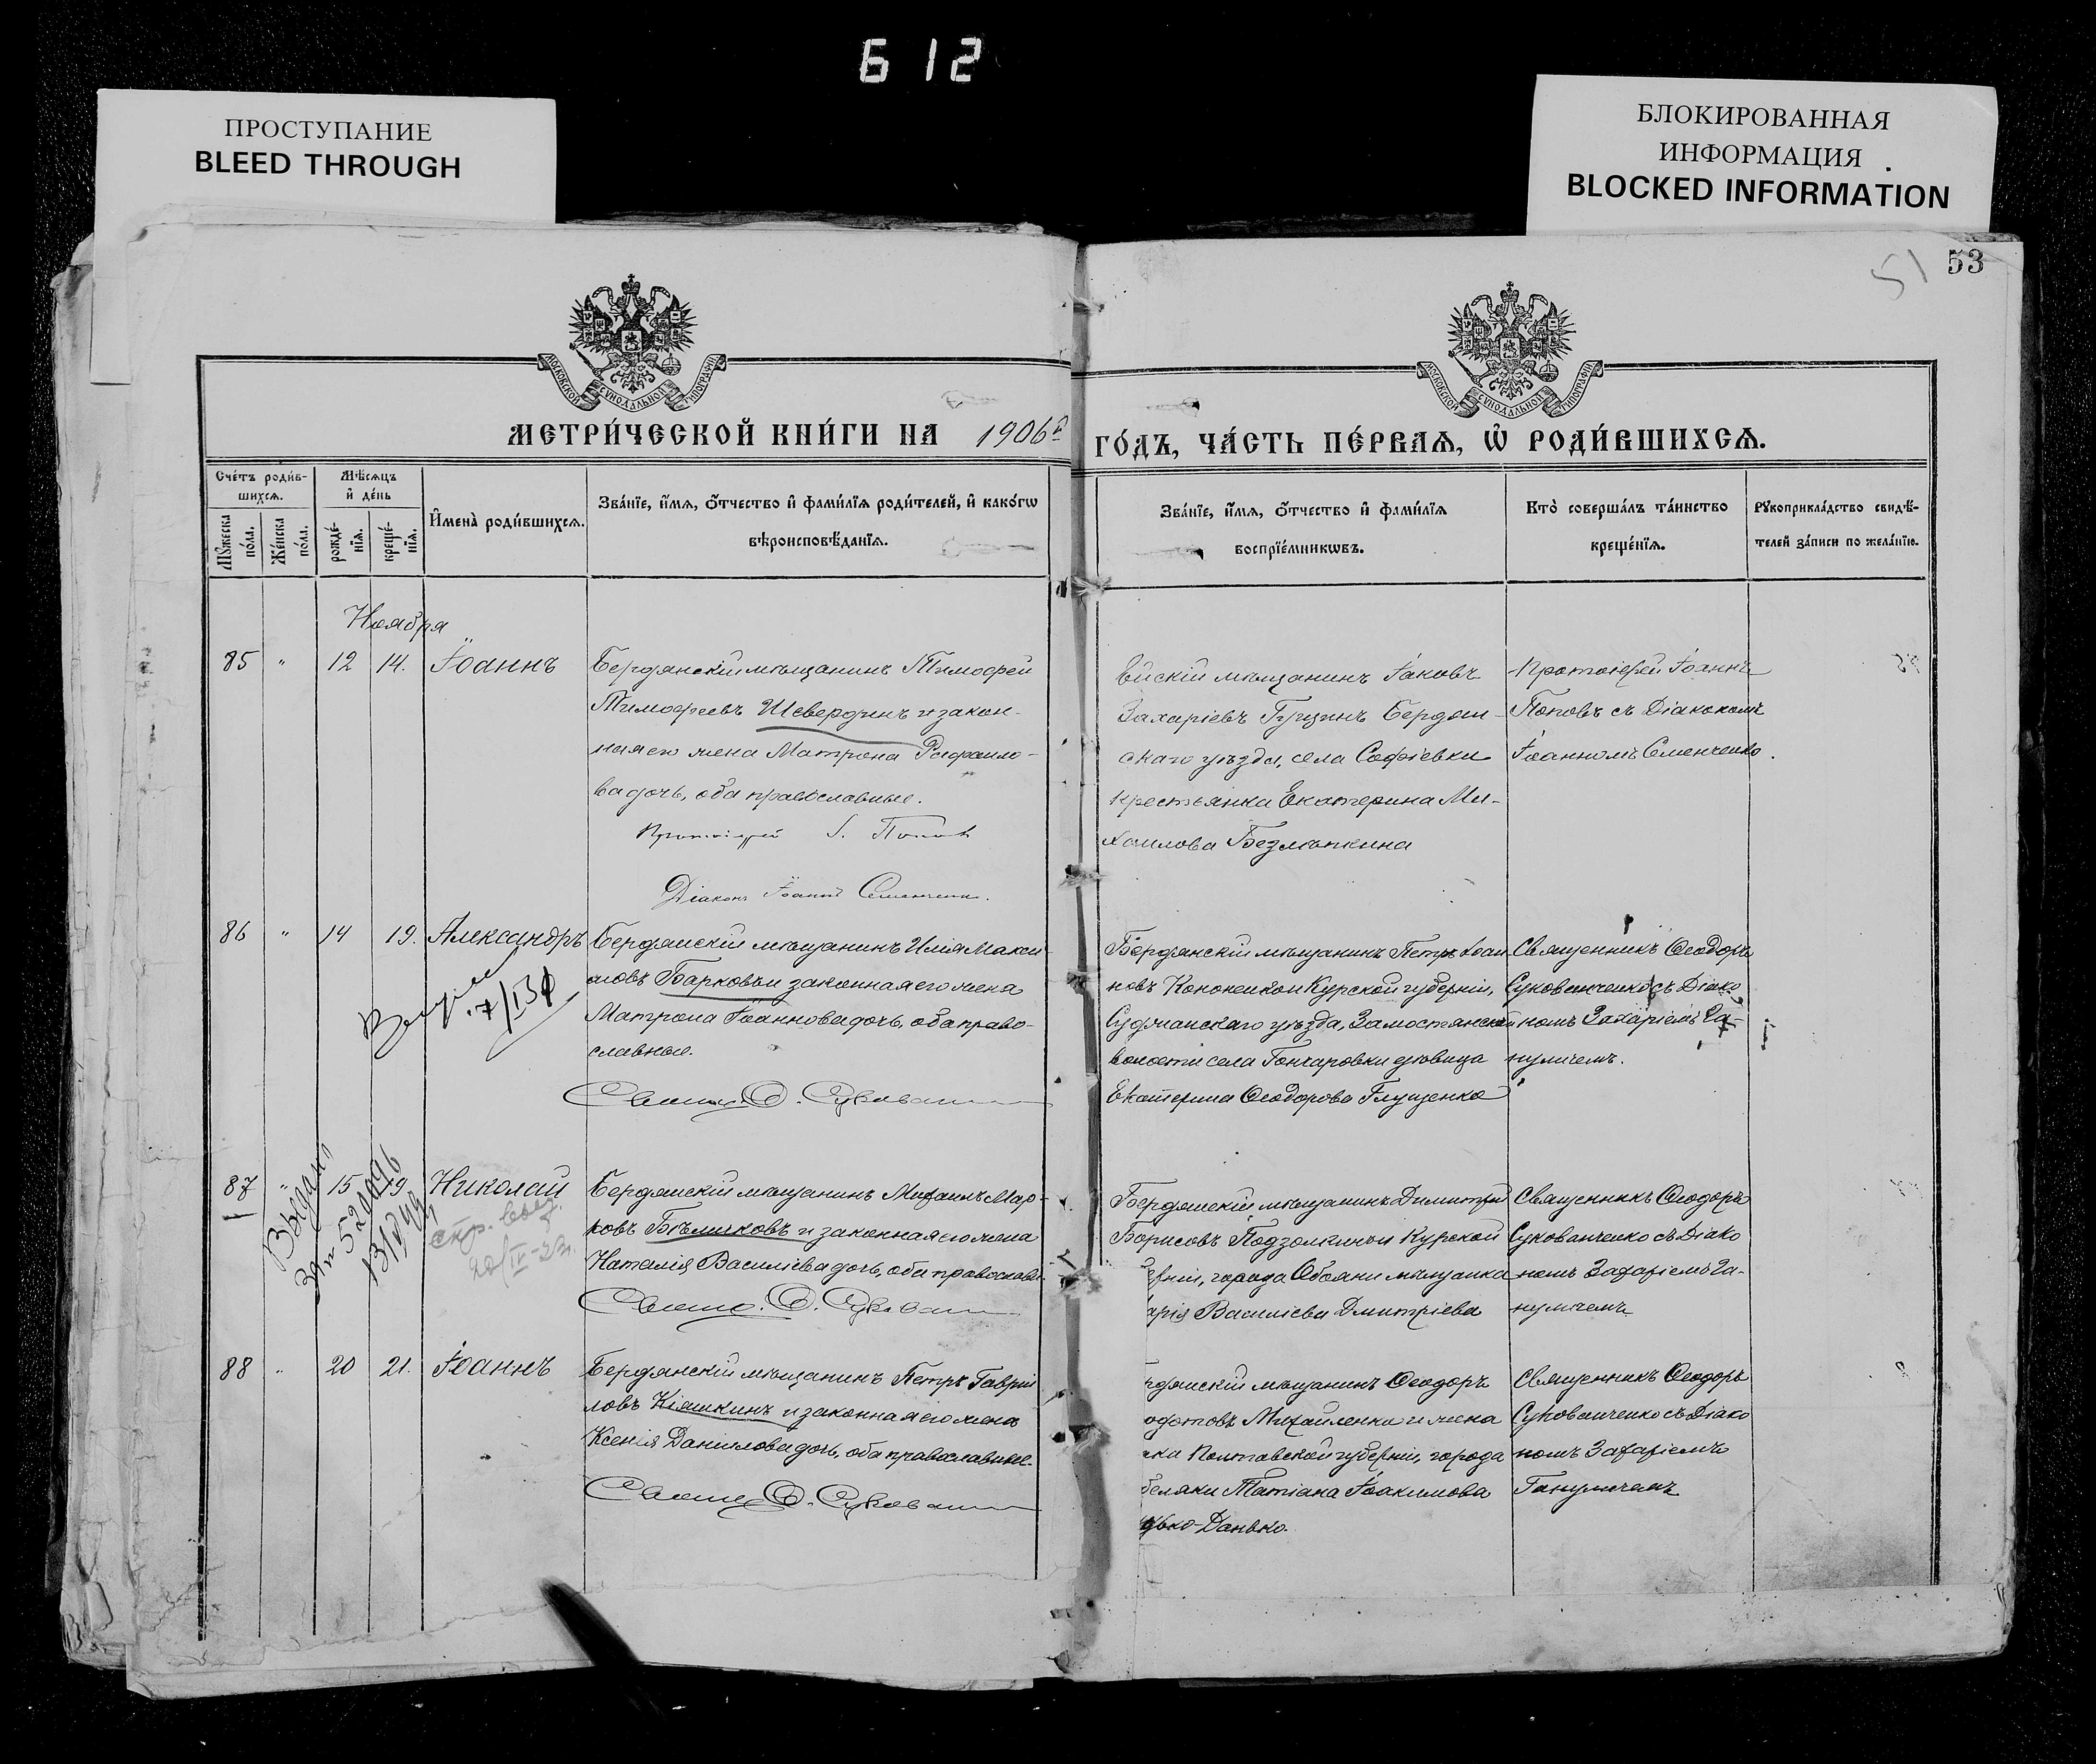 612
ПРОСТУПАНИЕ
BLEED THROUGH
БЛОКИРОВАННАЯ
ИНФОРМАЦИЯ
BLOCKED INFORMATION
53
51
МОСКОВСКОЙ СУНОДАЛЬНОЙ ТИПОГРАФІИ
МОСКОВСКОЙ СУНОДАЛЬНОЙ ТИПОГРАФІИ
МЕТРИ́ЧЕСКОЙ КНИ́ГИ НА 1906й
ГО́ДЪ, ЧА́СТЬ ПЕ́РВАѦ, Ѡ РОДИ́ВШИХСѦ.
Сче́тъ роди́в-
шихсѧ.
Мѣ́сѧцъ
и де́нь
Мꙋ́жеска по́ла.
Же́нска по́ла.
рожде́-нїѧ.
креще́-нїѧ.
Имена̀ роди́вшихсѧ.
Зва́нїе, и́мѧ, ѻ́тчество и фами́лїѧ роди́телей, и како́гѡ
вѣроисповѣ́данїѧ.
Зва́нїе, и́мѧ, ѻ́тчество и фами́лїѧ
воспрїе́мникѡвъ.
Кто̀ соверша́лъ та́инство
креще́нїѧ.
Рꙋкоприкла́дство свидѣ́-
телей за́писи по жела́нїю.
Ноября
85 " 12 14. Іоаннъ
Бердянскій мѣщанинъ Тимофей
Тимофеевъ Шевердинъ и закон-
ная его жена Матрона
ва дочь, оба православные.
Протоіерей І. Попов
Діаконъ Іоаннъ Семенченко.
Ейскій мѣщанинъ Іаковъ
Захаріевъ Гущинъ Бердян-
скаго уѣзда, села Софіевки
крестьянка Екатерина Ми-
хаилова Безмѣткина
Протоіерей Іоаннъ
Поповъ съ Діакономъ
Іоанномъ Семенченко.
86 " 14 19. Александръ
Бердянскій мѣщанинъ Илія Макси-
мовъ Барковъ и законная его жена
Матрона Іоаннова дочь, оба право-
славные.
Священ. Ѳ. Сукован
Бердянскій мѣщанинъ Петръ Іоан
новъ Кононенко и Курской губерніи,
Суджанскаго уѣзда, Замостянской
волости села Гончаровки дѣвица
Екатерина Ѳеодорова Глущенко
Священникъ Ѳеодоръ
Сукованченко съ Діако
номъ Захаріемъ Га-
нуличемъ.
87 " 15 19 Николай
Выдано
Бердянскій мѣщанинъ Михаилъ Мар-
ковъ Бѣличковъ и законная его жена
Наталія Василіева дочь, оба православн.
Священ. Ѳ. Сукован
Бердянскій мѣщанинъ Димитрій
Борисовъ Подзолкинъ и Курской
ерніи, города Обояни мѣщанка
арія Василіева Дмитріева
Священникъ Ѳеодоръ
Сукованченко съ Діако
номъ Захаріемъ Га-
нуличемъ
88 " 20 21. Іоаннъ
Бердянскій мѣщанинъ Петръ Гаврии
ловъ Кіяшкинъ и законная его жена
Ксенія Даніилова дочь, оба православные.
Священ. Ѳ. Сукован
рдянскій мѣщанинъ Ѳеодоръ
Михайленко и жена
ка Полтавской губерніи, города
беляки Татіана Іоакимова
Данько.
Священникъ Ѳеодоръ
Сукованченко съ Діако
номъ Захаріемъ
Гануличемъ